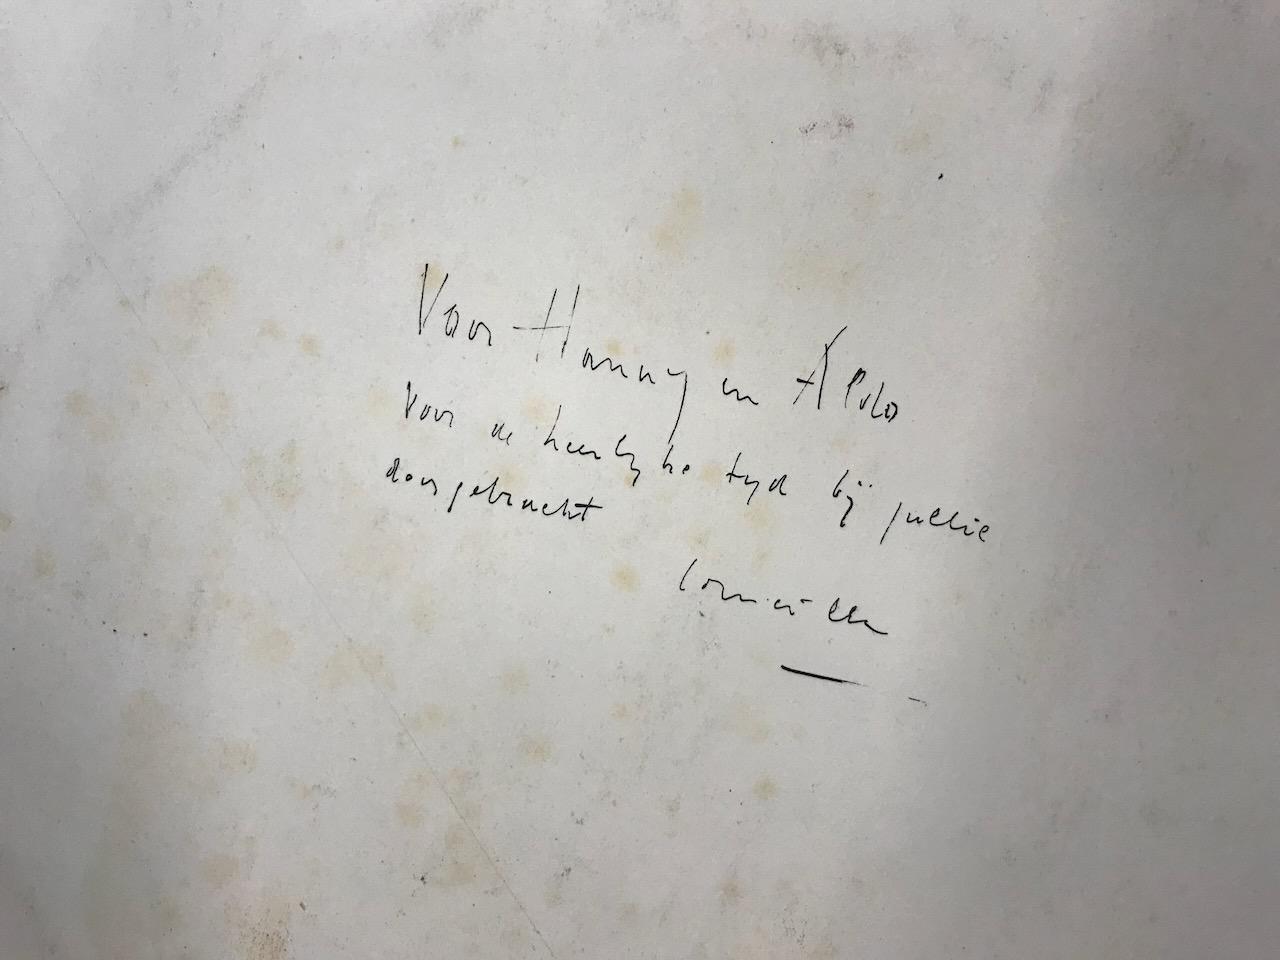 Voor Hanny en Aldo
Voor de heerlyke tyd bij jullie
doorgebracht
Corneille